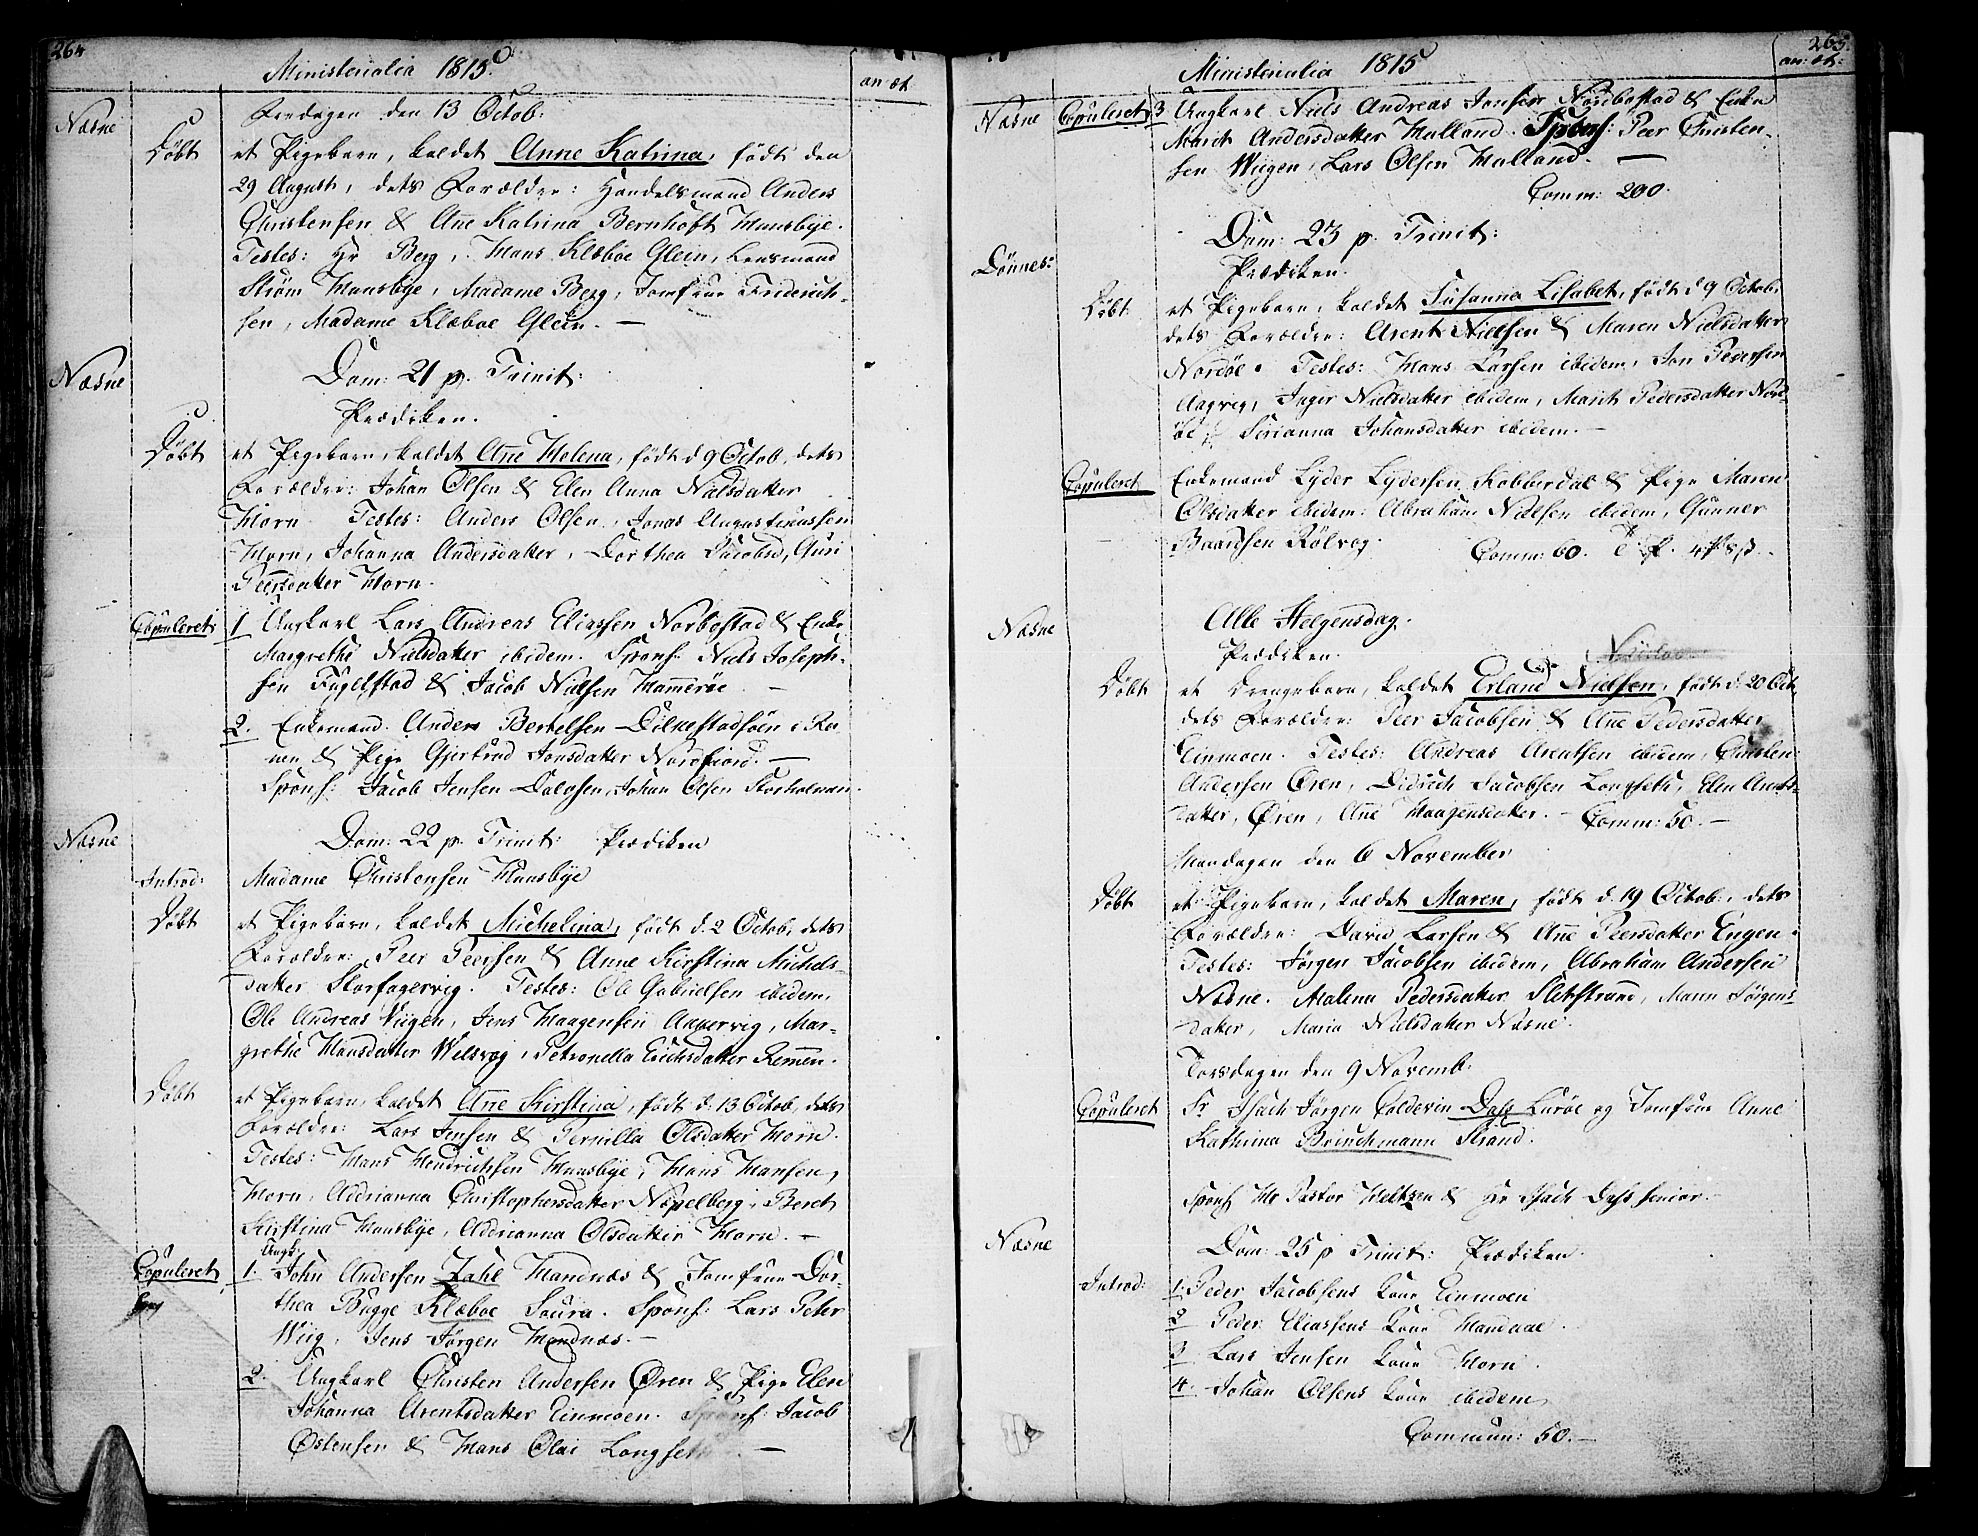 264
Ministerialia 1815.
an: æt.
Næsne
Fredagen den 13 Octob:
Døbt
et Pigebarn, kaldet Anne Katrina, født den
29 August, dets Forældre: Handelsmand Anders
Christensen & Ane Katrina Bernhoft Huusbye.
Testes: Hr Berg, Hans Klæboe Glein, Lensmand
Strøm Huusbye, Madame Berg, Jomfrue Friderich-
sen, Madame Klæboe Glein. —
Næsne
Dom: 21 p. Trinit:
Prædiken.
Døbt
et Pigebarn, kaldet Ane Helena, født d 9 Octob, dets
Forældre: Johan Olsen & Elen Anna Nielsdatter
Horn. Testes: Anders Olsen, Jonas Augustinussen
Horn, Johanna Andersdatter, Dorthea Jacobsd, Guri
Peersdatter Horn.
Copuleret
1 Ungkarl Lars Andreas Eliassen Norbostad & Enke
Margrethe Nielsdatter ibidem. Spons: Niels Joseph-
sen Fuglstad & Jacob Nielsen Hammerøe —
2. Enkemand Anders Bertelsen i Ra-
nen & Pige Gjertrud Jonsdatter Nordfiord. —
Spons: Jacob Jensen Dalosen, Johan Olsen Storholman.
Næsne
Dom: 22 p. Trinit: Prædiken
Introd:
Madame Christensen Huusbye
Døbt
et Pigebarn, kaldet Michelina, født d. 2 Octob, dets
Forældre: Peer Peersen & Anne Kirstina Michels-
datter Storfagervig. Testes: Ole Gabrielsen ibidem,
Ole Andreas Viigen, Jens Haagensen Angervig, Mar-
grethe Hansdatter Welsvog, Petronella Erichsdatter Remmen.
Døbt
et Pigebarn, kaldet Ane Kirstina, født d. 13 Octob, dets
Forældre: Lars Jensen & Pernilla Olsdatter Horn.
Testes: Hans Hendrichsen Huusbye, Hans Hansen,
Horn, Addrianna Christophersdatter Nøpelberg, Beret
Kirstina Huusbye, Addrianna Olsdatter Horn. —
Copuleret
Ungk:
1. John Andersen Zahl Handnæs & Jomfrue Dor-
thea Bugge Klæboe Soura. Spons: Lars Peter
Wiig, Jens Jørgen Handnæs. —
2. Ungkarl Christen Andersen Øren & Pige Elen
Johanna Arentsdatter Einmoen. Spons: Jacob
Østensen & Hans Olai Langset —
265.
Ministerialia 1815
an: æt:
Næsne
Copuleret
3 Ungkarl Niels Andreas Jonsen Nordbostad & Enke
Marit Andersdatter Halland. Spons: Peer Christen-
sen Wiigen, Lars Olsen Halland. —
Comm: 200.
Dom: 23 p. Trinit:
Dønnes:
Prædiken.
Døbt
et Pigebarn, kaldet Susanna Lisabet, født d 9 Octob:
dets Forældre: Arent Nielsen & Maren Nielsdatter
Nordøe. Testes: Hans Larsen ibidem, Jon Pedersen
Aagvig, Inger Nielsdatter ibidem, Marit Pedersdatter Nord-
øe, Sirianna Johansdatter ibidem. —
Copuleret
Enkemand Lyder Lydersen Kobberdal & Pige Maren
Olsdatter ibidem: Abraham Nielsen ibidem, Gunner
Baardsen Rølvog.
Comm: 60.
Næsne
Alle Helgensdag.
Prædiken.
Døbt
et Drengebarn, kaldet Erland Nielsen, født d. 20 Oct,
dets Forældre: Peer Jacobsen & Ane Pedersdatter
Einmoen. Testes: Andreas Arentsen ibidem, Christen
Andersen Øren, Didrich Jacobsen Langseth, Elen Arents-
datter, Øren, Ane Haagensdatter. — Comm: 50. —
Mandagen den 6 November
Døbt
et Pigebarn, kaldet Maren, født d. 19 Octob:, dets
Forældre: David Larsen & Ane Peersdatter Engen.
Testes: Jørgen Jacobsen ibidem, Abraham Andersen
Næsne. Malena Pedersdatter Sletstrand, Maren Jørgens-
datter, Maria Nielsdatter Næsne.
Torsdagen den 9 Novemb:
Copuleret
Sr Isach Jørgen Coldevin Dass Lurøe og Jomfrue Anne
Kathrina Brinchmann Strand.
Spons: Hr Pastor Heltzen & Hr Isach Dass senior —
Næsne
Dom: 25 p Trinit: Prædiken.
Introd:
1. Peder Jacobsens kone Einmoen
2 Peder Eliassens kone Handaal
3 Lars Jensen kone Horn.
4. Johan Olsens kone ibidem,
Commun: 50. —